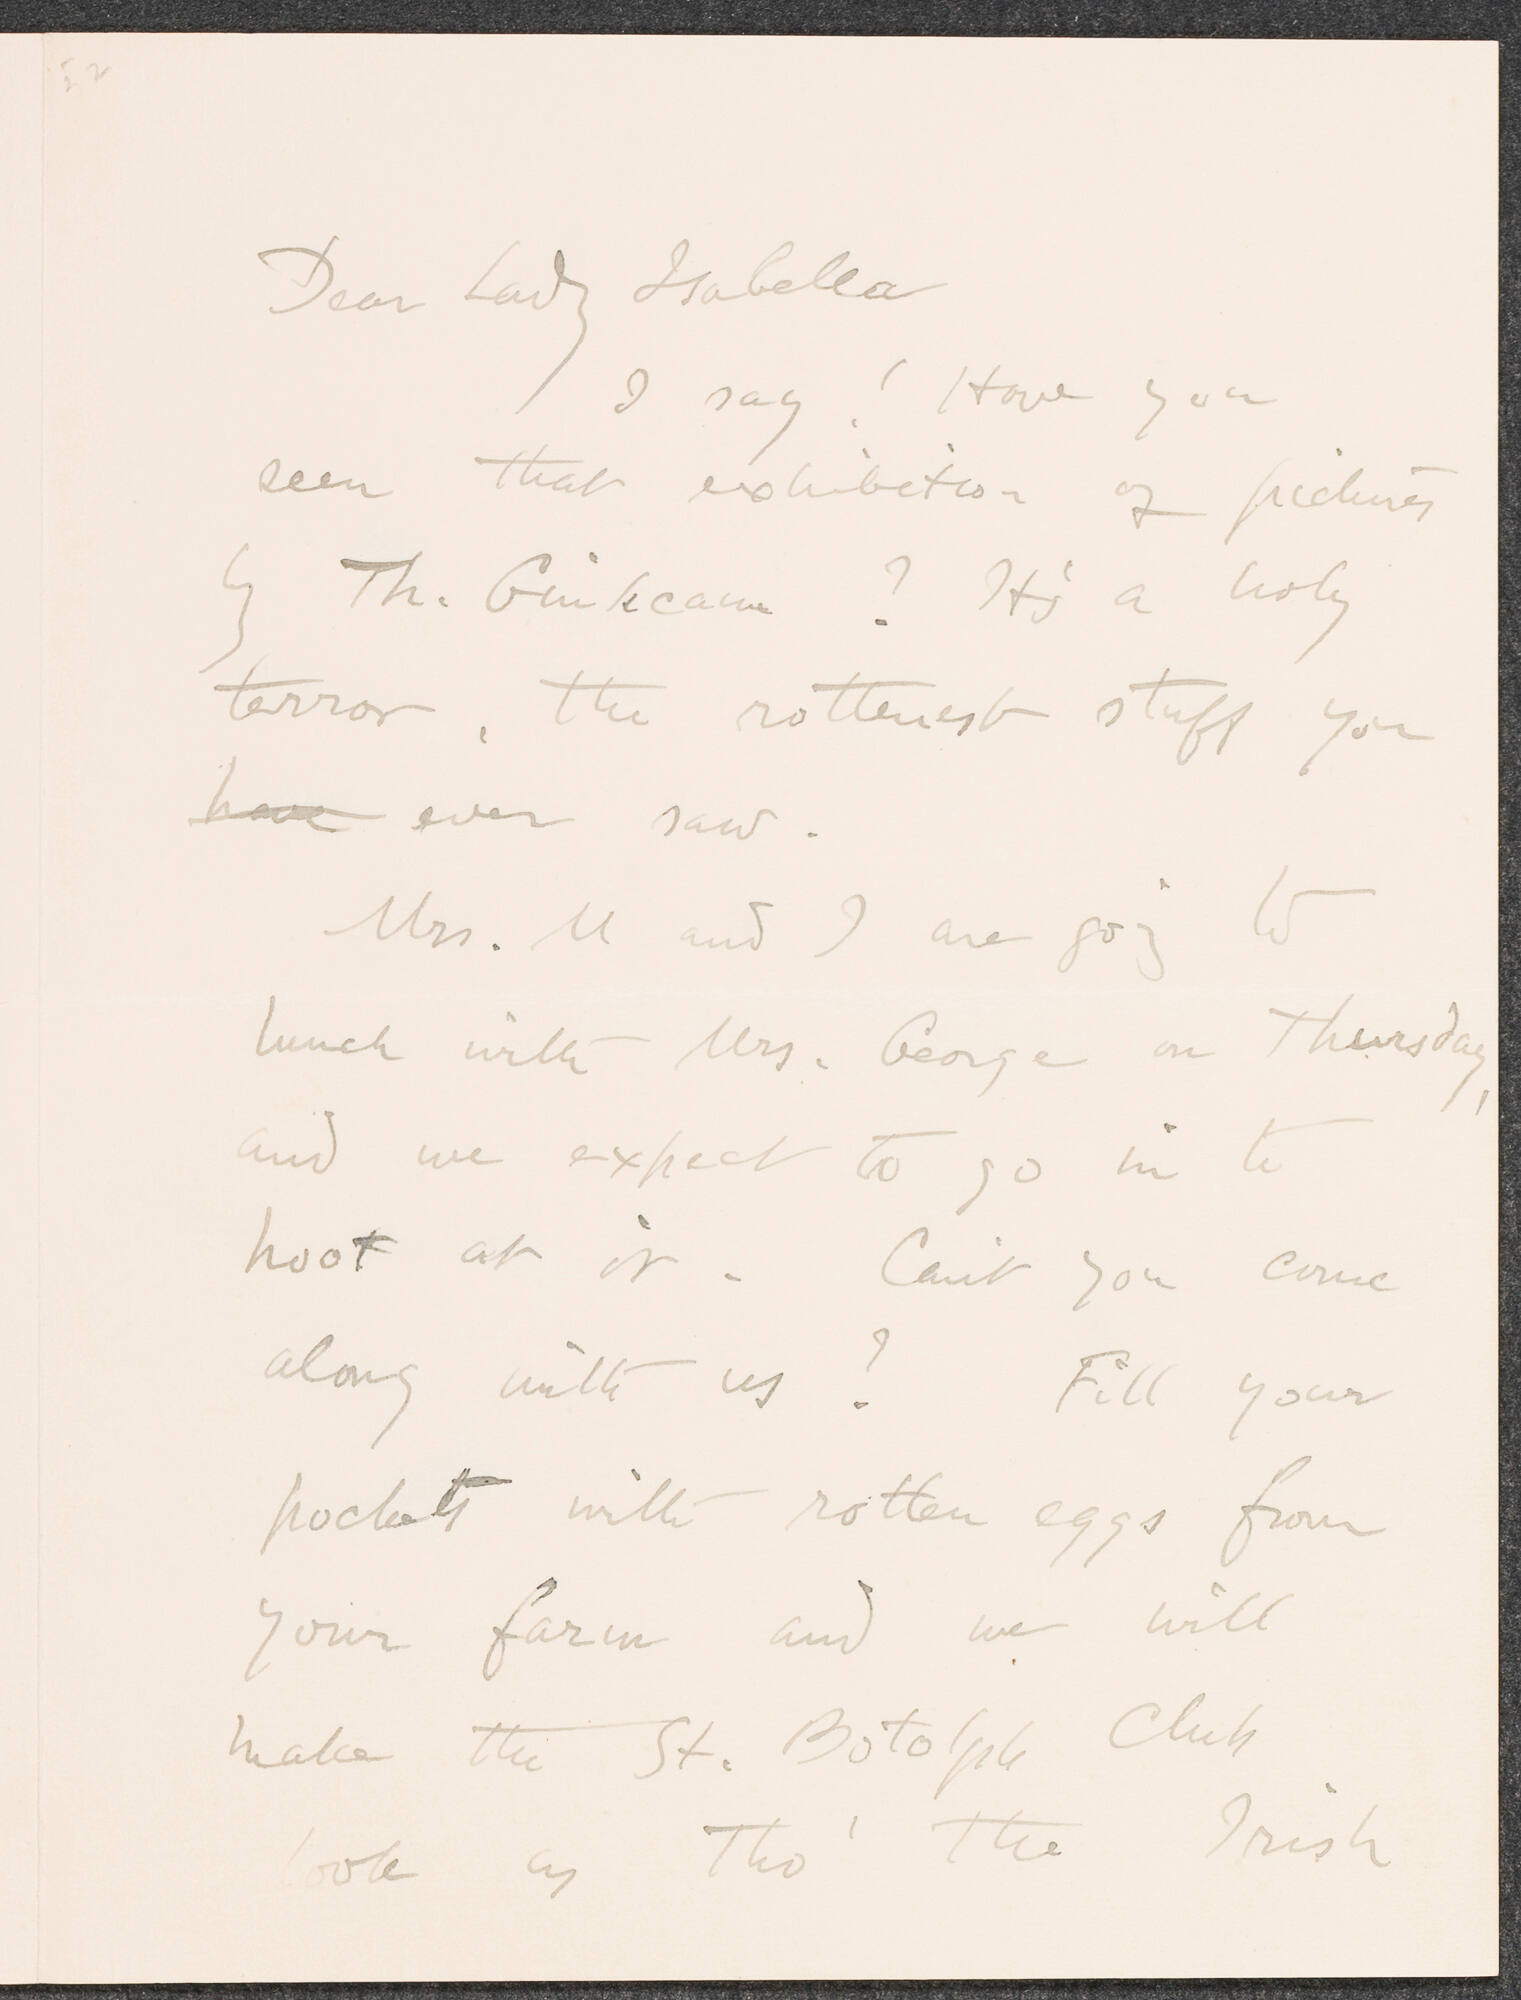 Dear Lady Isabella
I say! Have you
seen that exhibition of pictures
by Th.              ? It's a holy
terror, the rottenest stuff you
have ever saw.
Mrs. M and I are going to
lunch with Mrs. George on Thursday,
and we expect to go in to
hoot at it. Can't you come
along with us? Fill your
pockets with rotten eggs from
your farm and we will
make the St. Botolph Club
look as tho' the Irish